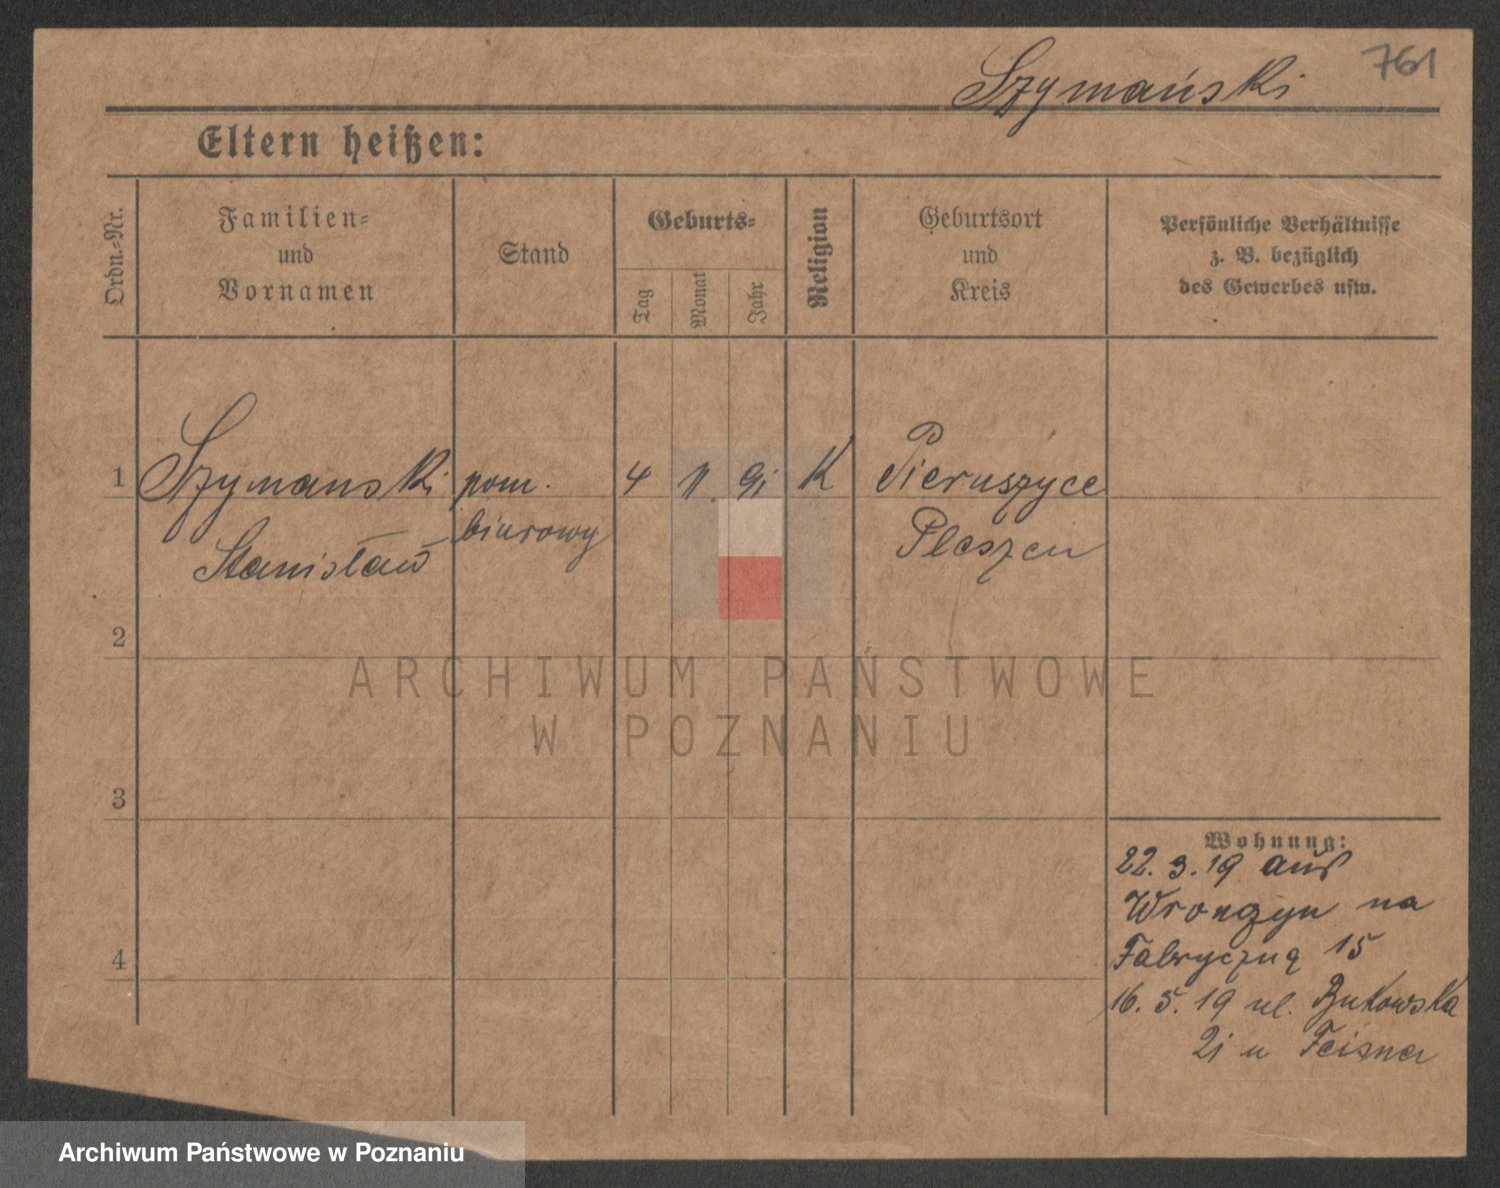 761
Szymański
Eltern heißen:
Ordn.=Nr.
Familien=
und
Vornamen
Stand
Geburts=
Tag
Monat
Jahr
Religion
Geburtsort
und
Kreis
Persönliche Verhältnisse
z. B. bezüglich
des Gewerbes usw.
1 Szymanski pom. 4 11. 91 K Pieruszyce
Stanisław biurowy Pleszen
2
ARCHIWUM PAŃSTWOWE
W POZNANIU
3
Wohnung:
22. 3. 19 aus
Wronczyn na
Fabryczną 15
4
16. 5. 19 ul. Bukowska
21 u Feisner
Archiwum Państwowe w Poznaniu